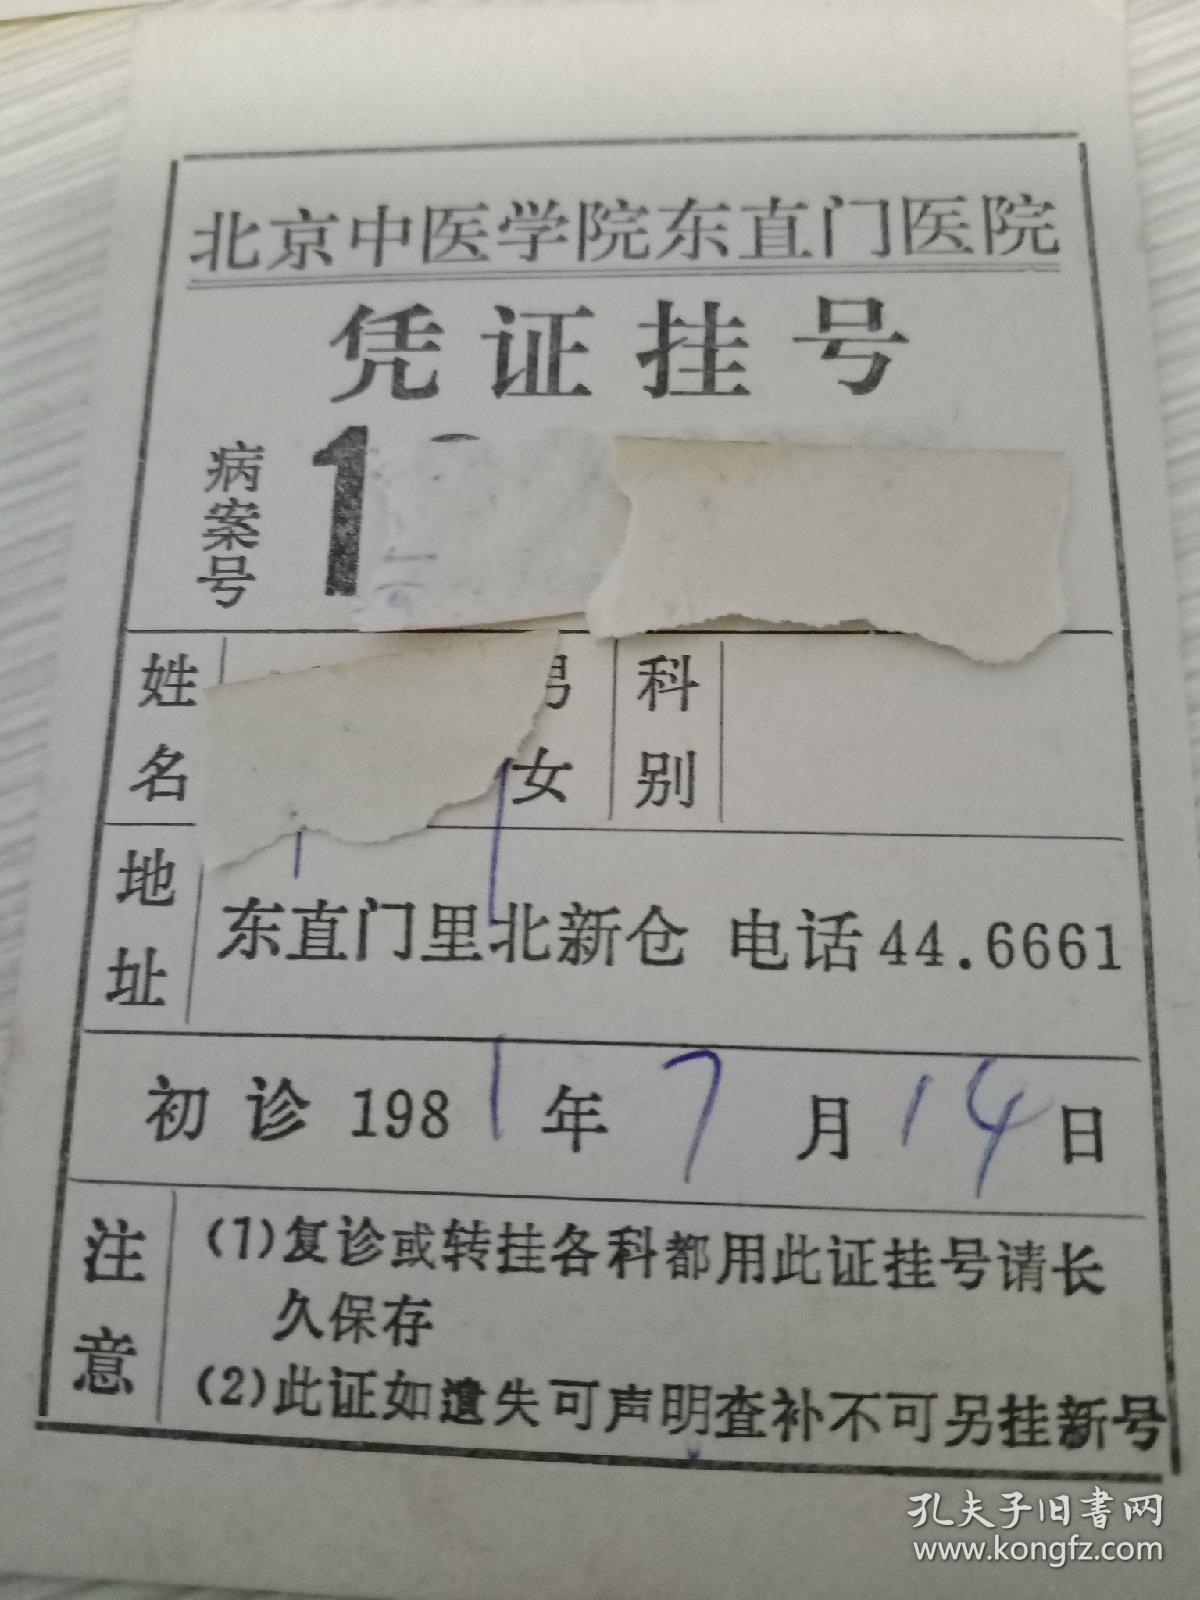 北京中医学院东直门医院
凭证挂号
病案号 1
姓名 男 女 科别
地址 东直门里北新仓 电话44.6661
初诊 1981年7月14日
注意
(1)复诊或转挂各科都用此证挂号请长
久保存
(2)此证如遗失可声明查补不可另挂新号
孔夫子旧书网
www.kongfz.com